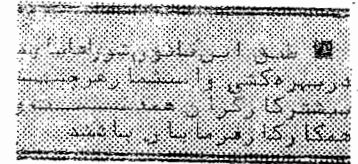 طبق این قانون شوراها باید
در بهره‌کشی و استثمار هرچه
بیشتر کارگران همدست و
همکار کارفرمایان باشند